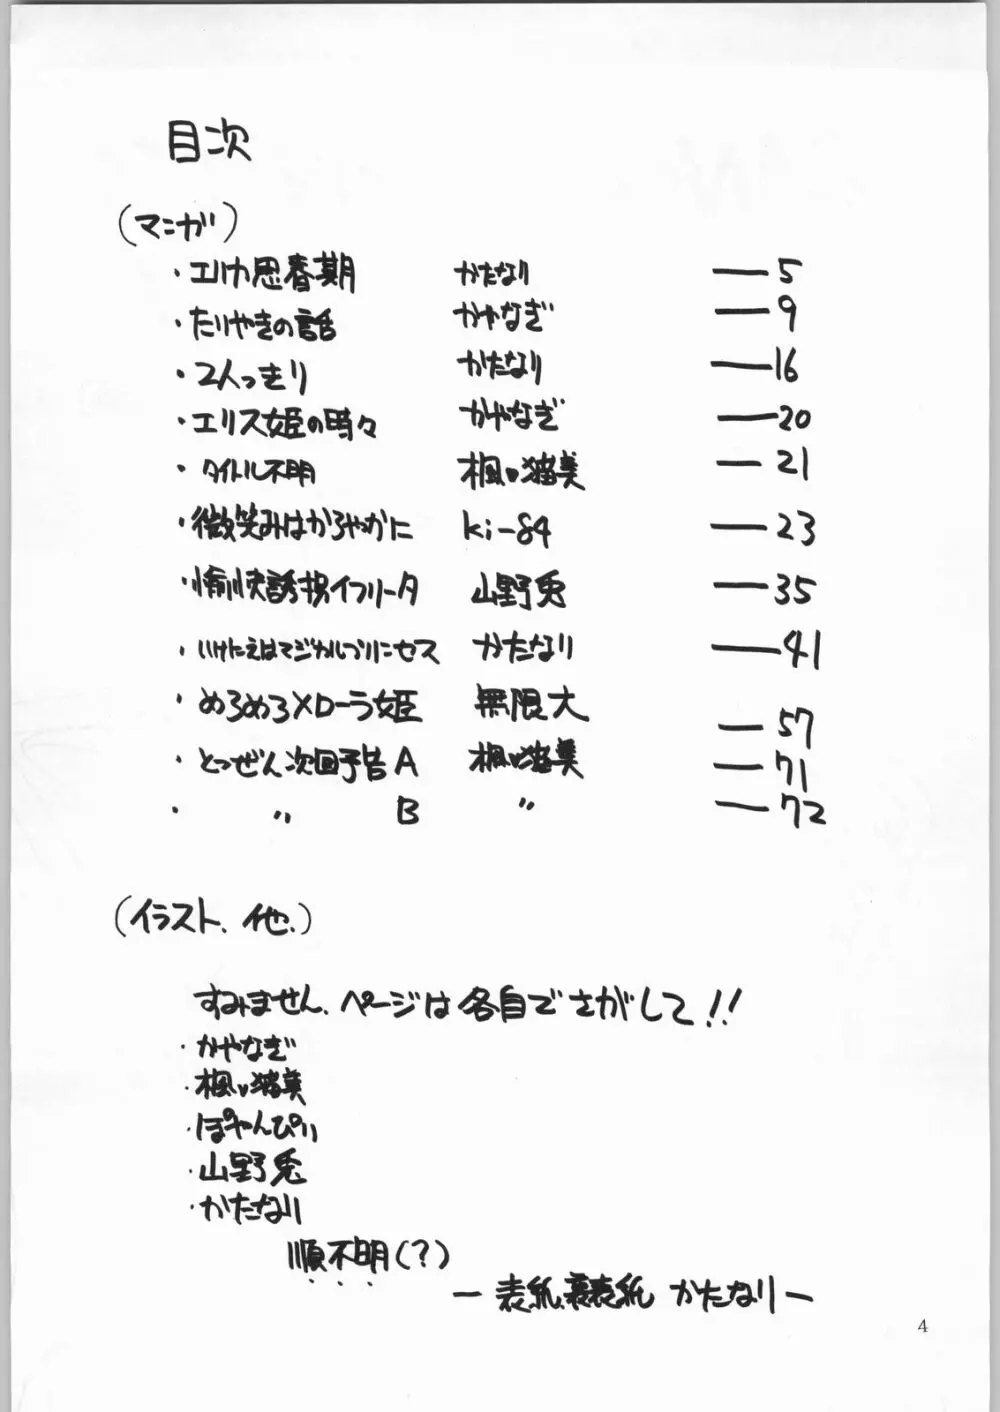 目次
(マンガ)
・エリカ思春期 かたなり ― 5
・たりやきの話 かやなぎ ― 9
・2人っきり かたなり ― 16
・エリス姫の時々 かやなぎ ― 20
・タイトル不明 楓ッ猫美 ― 21
・微笑みはかろやかに ki-84 ― 23
・愉快誘拐イフリータ 山野兎 ― 35
・いけにえはマジカルプリンセス かたなり ― 41
・めろめろ×ローラ姫 無限大 ― 57
・とつぜん次回予告A 楓ッ猫美 ― 71
・ 〃 B 〃 ― 72
(イラスト、他、)
すみません、ページは各自でさがして!!
・かやなぎ
・楓ッ猫美
・ぽやんぴぃ
・山野兎
・かたなり
順不明(?)
― 表紙、裏表紙 かたなり ―
4